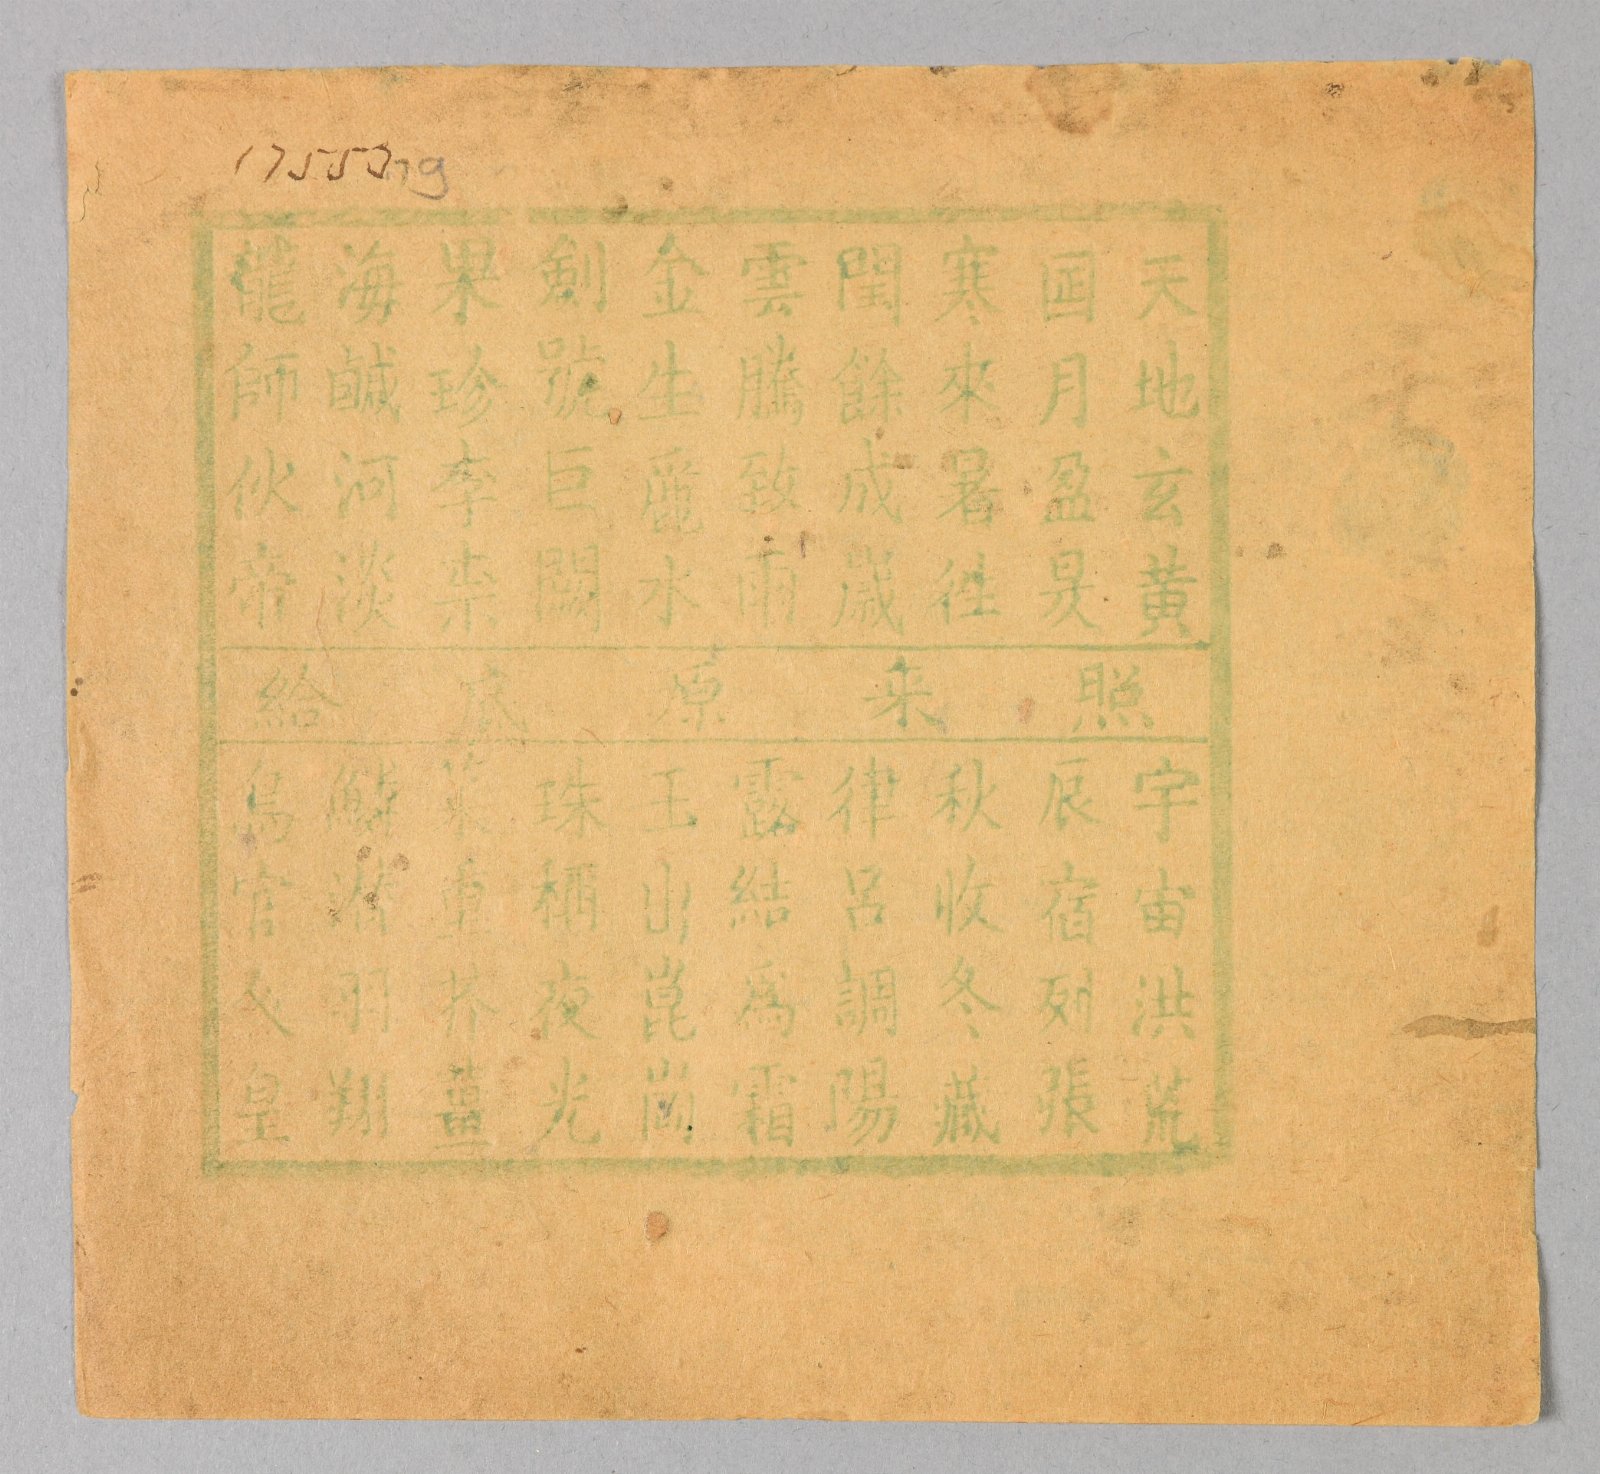 17553 ng
天地玄黃
囸月盈昃
寒來暑徃
閏餘成歲
雲騰致雨
金生麗水
劍號巨闕
果珍李柰
海鹹河淡
龍師伙帝
照来原底給
宇宙洪荒
辰宿列張
秋收冬藏
律呂調陽
露結為霜
玉出崑崗
珠稱夜光
菜重芥薑
鱗潛羽翔
鳥官人皇